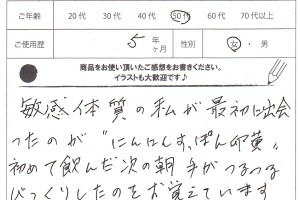 ご年齢 20代 30代 40代 50代 60代 70代以上
ご使用歴 5 年 ヶ月 性別 女・男
商品をお使い頂いたご感想をお書きください。
イラストも大歓迎です♪
敏感体質の私が最初に出会
ったのが“にんにんすっぽん卵黄〟
初めて飲んだ次の朝手がつるつる
びっくりしたのを覚えています